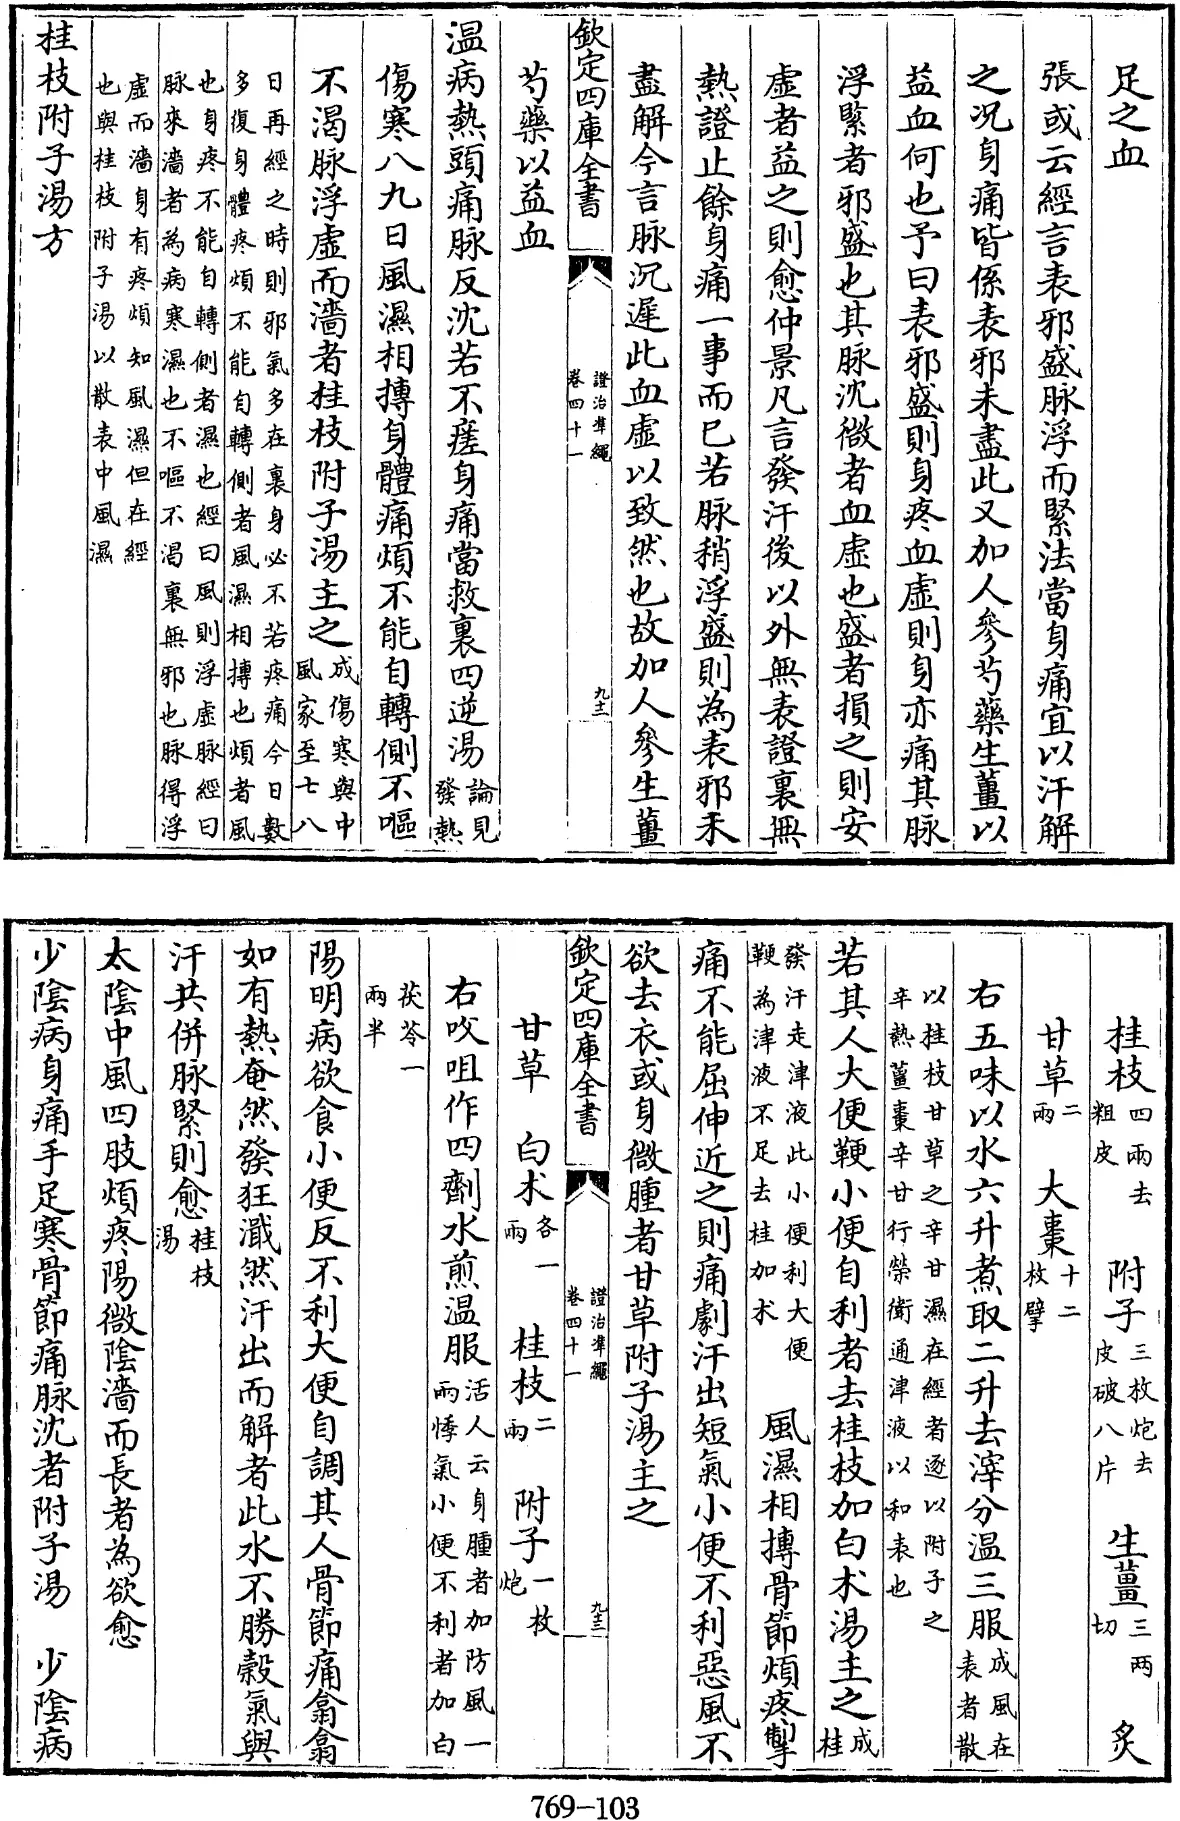 足之血
張或云經言表邪盛脉浮而緊法當身痛宜以汗解
之况身痛皆係表邪未盡此又加人參芍藥生薑以
益血何也予曰表邪盛則身疼血虛則身亦痛其脉
浮緊者邪盛也其脉沈微者血虛也盛者損之則安
虛者益之則愈仲景凡言發汗後以外無表證裏無
熱證止餘身痛一事而已若脉稍浮盛則為表邪未
盡解今言脉沉遲此血虛以致然也故加人參生薑
欽定四庫全書
證治準繩
卷四十一
九十二
芍藥以益血
温病熱頭痛脉反沈若不瘥身痛當救裏四逆湯
論見
發熱
傷寒八九日風濕相搏身體痛煩不能自轉側不嘔
不渴脉浮虛而濇者桂枝附子湯主之
成傷寒與中
風家至七八
日再經之時則邪氣多在裏身必不若疼痛今日數
多復身體疼煩不能自轉側者風濕相搏也煩者風
也身疼不能自轉側者濕也經曰風則浮虛脉經曰
脉來濇者為病寒濕也不嘔不渴裏無邪也脉得浮
虛而濇身有疼煩知風濕但在經
也與桂枝附子湯以散表中風濕
桂枝附子湯方
桂枝
四兩去
粗皮
附子
三枚炮去
皮破八片
生薑
三两
切
炙
甘草
二
兩
大棗
十二
枚擘
右五味以水六升煮取二升去滓分温三服
成風在
表者散
以桂枝甘草之辛甘濕在經者逐以附子之
辛熱薑棗辛甘行榮衛通津液以和表也
若其人大便鞕小便自利者去桂枝加白术湯主之
成
桂
發汗走津液此小便利大便
鞕為津液不足去桂加术
風濕相搏骨節煩疼掣
痛不能屈伸近之則痛劇汗出短氣小便不利惡風不
欲去衣或身微腫者甘草附子湯主之
欽定四庫全書
證治準繩
卷四十一
九十三
甘草
白术
各一
兩
桂枝
二
兩
附子
一枚
炮
右㕮咀作四劑水煎温服
活人云身腫者加防風一
兩悸氣小便不利者加白
茯苓一
兩半
陽明病欲食小便反不利大便自調其人骨節痛翕翕
如有熱奄然發狂濈然汗出而解者此水不勝穀氣與
汗共併脉緊則愈
桂枝
湯
太陰中風四肢煩疼陽微陰濇而長者為欲愈
少陰病身痛手足寒骨節痛脉沈者附子湯
少陰病
769-103